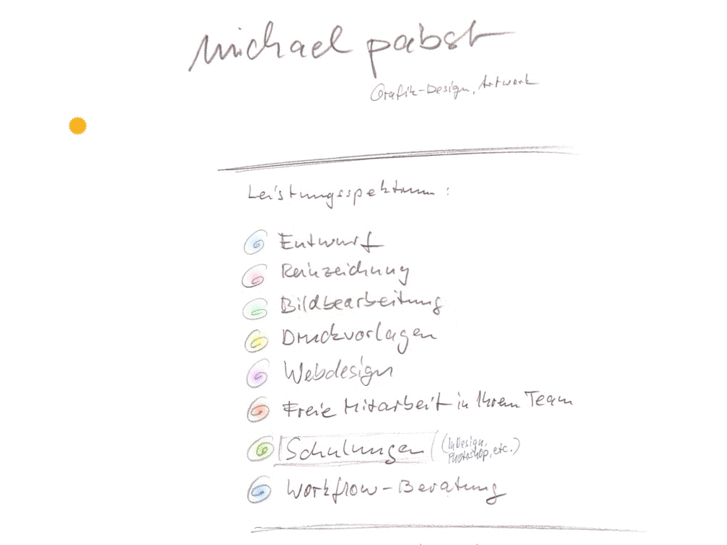 michael pabst
Grafik-Design, Artwork
Leistungsspektrum:
Entwurf
Reinzeichnung
Bildbearbeitung
Druckvorlagen
Webdesign
Freie Mitarbeit in Ihrem Team
Schulungen (InDesign, Photoshop, etc.)
Workflow-Beratung